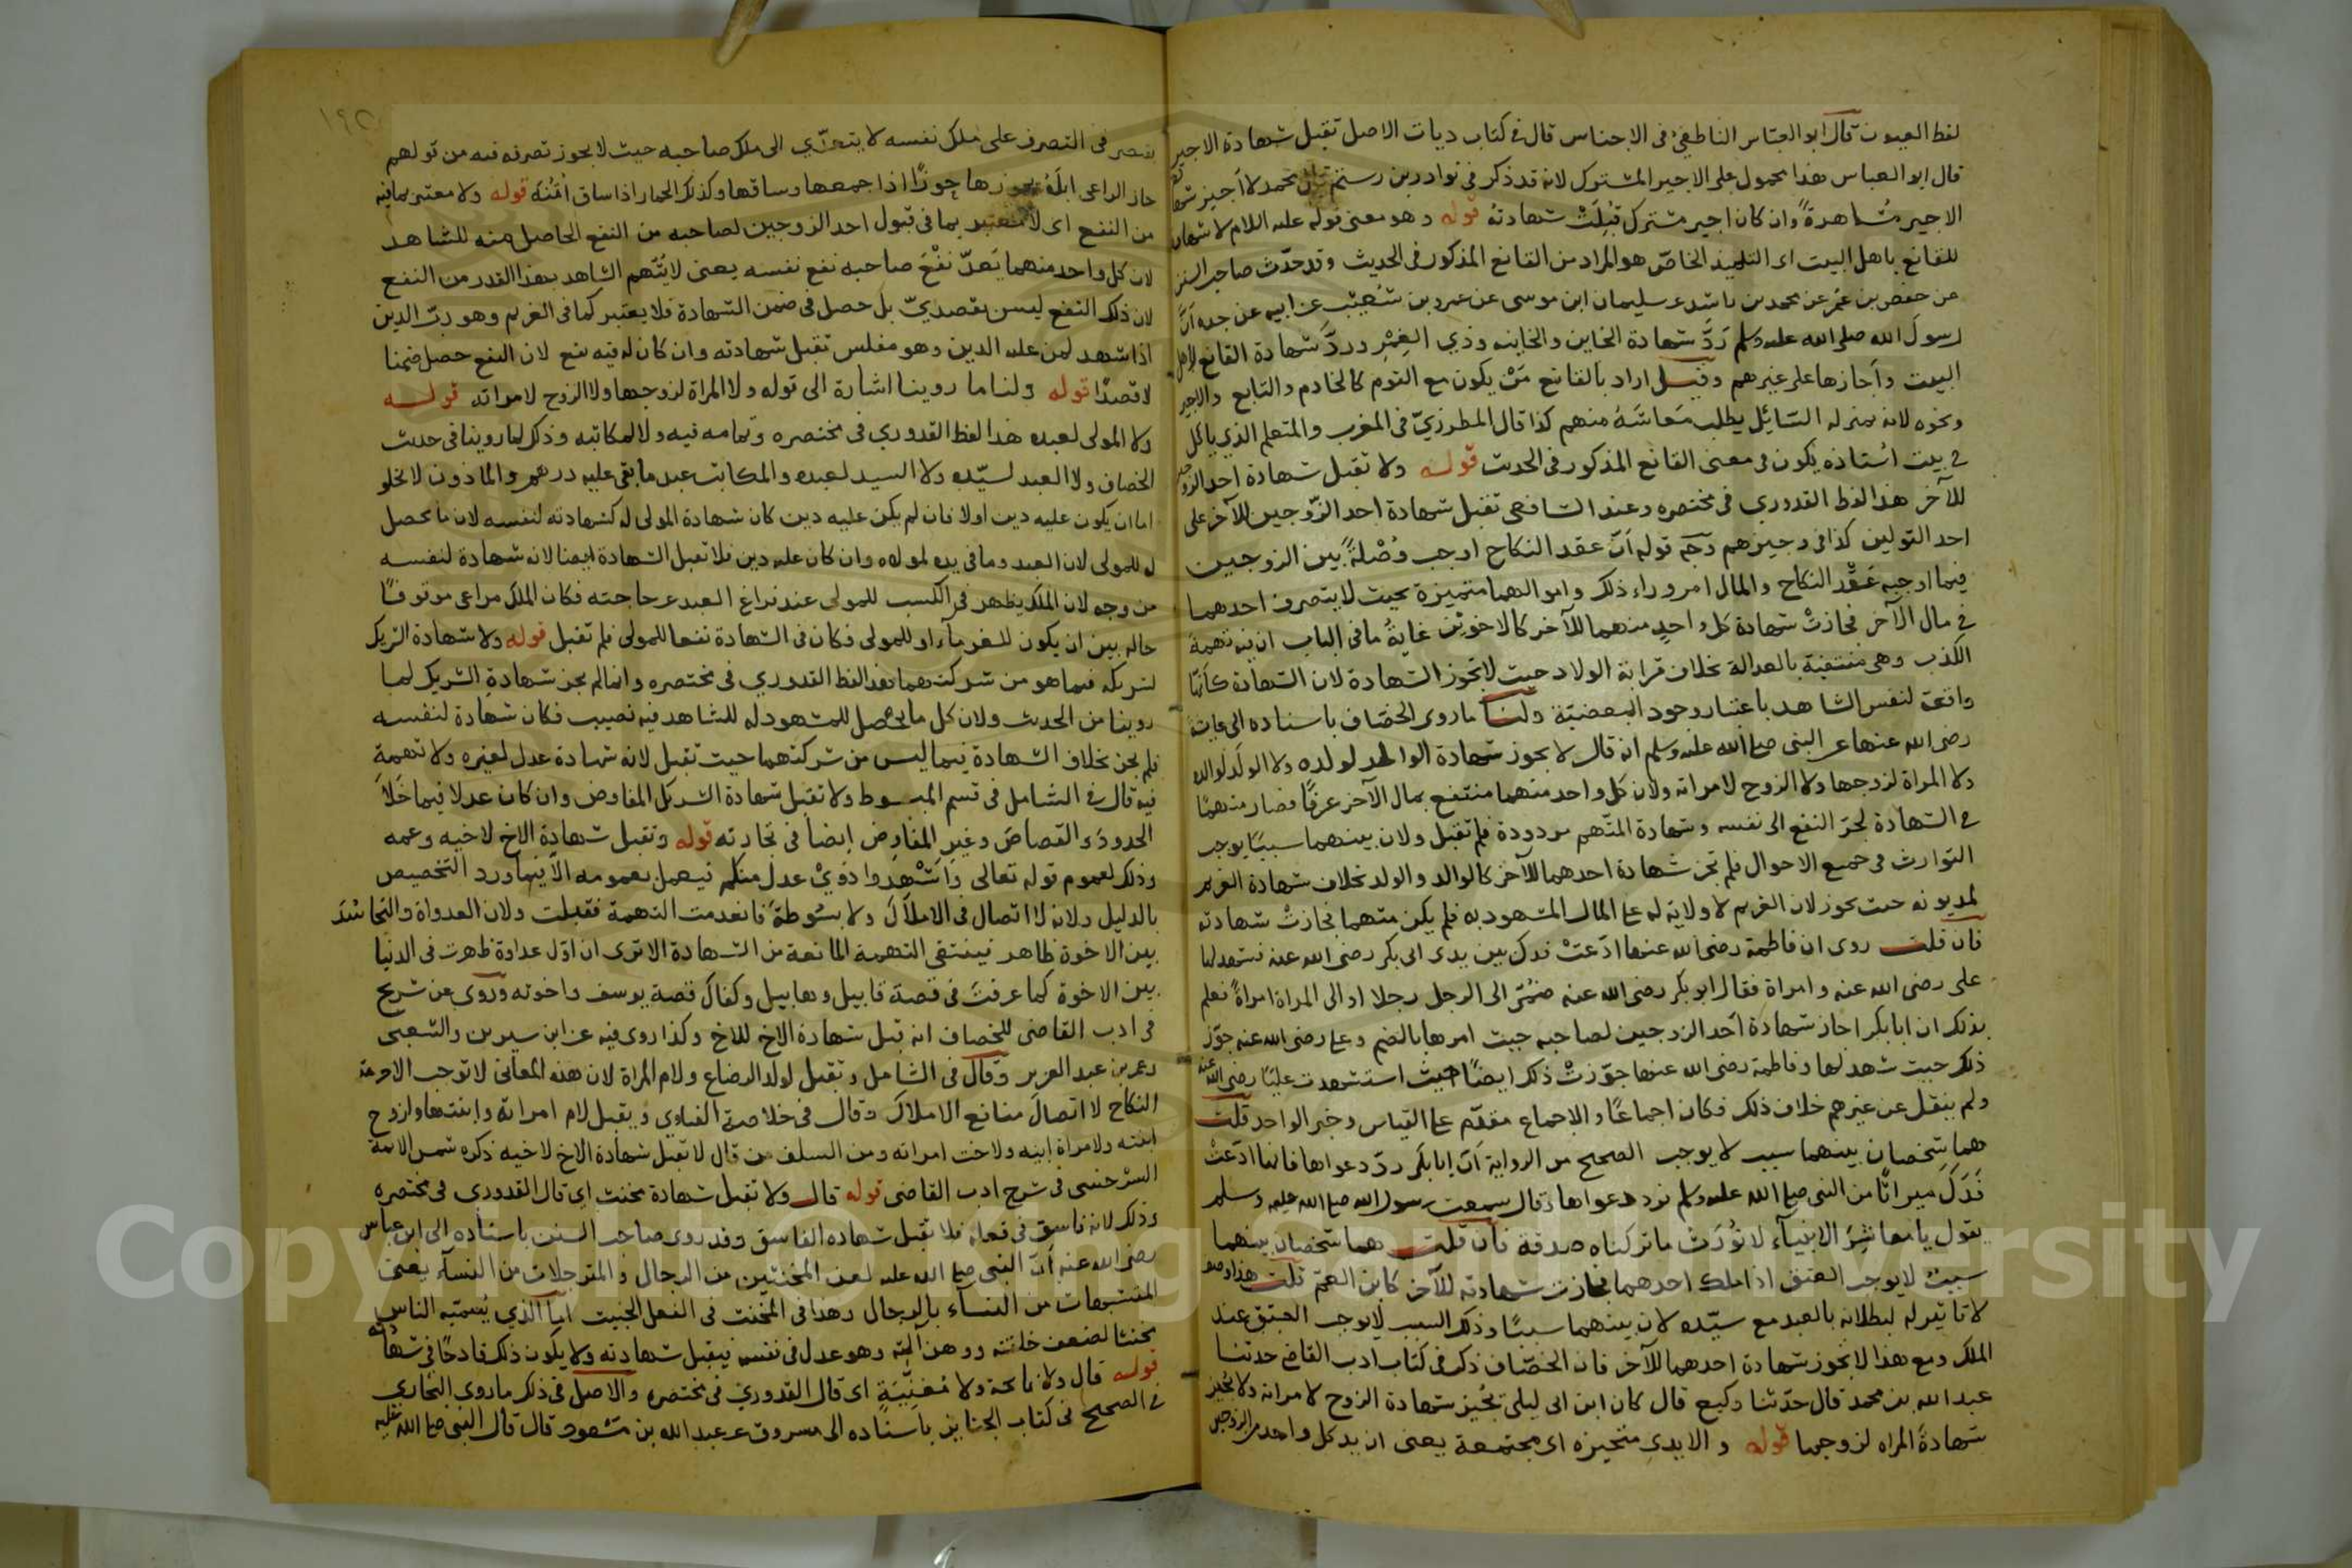 لفظ العيون قال ابو العباس الناطفي في الاجناس قال في كتاب ديات الاصل تقبل شهادة الاجير
قال ابو العباس هذا محمول على الاجير المشترك لانه قد ذكر في نوادر بن رستم قال محمد لا اجيز شهادة
الاجير مشاهرةً وان كان اجير مشترك قُبِلَتْ شهادتُه قوله وهو معنى قوله عليه السلام لا شهادة
للقانع باهل البيت اى التلميذ الخاصّ هو المراد من القانع المذكور فى الحديث وقد حدّث صاحب السنن
عن حفص بن عُمر عن محمد بن راشد عن سليمان ابن موسى عن عمرو بن شُعَيْب عن ابيه عن جده اَنَّ
رسولَ الله صلى الله عليه وسلم رَدَّ شهادة الخاين والخاينه وذي الغِمْرِ وردَّ شهادة القانع لاهل
البيت واَجازها على غيرهم وقيل اراد بالقانع مَنْ يكون مع القوم كالخادم والتابع والاجير
ونحوه لانه بمنزله السّائِل يطلب مَعاشَهُ منهم كذا قال المطرزيّ فى المغرب والمتعلم الذي ياكل
في بيت اُستاذه يكون في معنى القانع المذكور فى الحديث قوله ولا تقبل شهادة احد الزوجين
للآخر هذا لفظ القدوري فى مختصره وعند الشافعى تقبل شهادة احد الزّوجين للآخر على
احد القولين كذا فى وجيزهم وَجه قوله اَنّ عقد النكاح اوجب وُصْلةً بين الزوجين
فيما اوجبه عَقْد النكاح والمال امر وراء ذلك واموالهما متميزة بحيث لا يتصرف احدهما
في مال الآخر فجازتْ شهادة كل واحدٍ منهما للآخر كالاخوَيْن غايةُ ما فى الباب ان فيه تهمة
الكذب وهى منتفية بالعدالة بخلاف قرابة الولاد حيث لا تجوز الشهادة لان الشهادة كأنّها
واقعة لنفس الشاهد باعتبار وجود البعضيّة ولنا ما روى الخصّاف باسناده الى عايشة
رضى الله عنها عن النبى صلى الله عليه وسلم انه قال لا يجوز شهادة الوالد لولده ولا الولَد لوالده
ولا المراة لزوجها ولا الزوج لامراته ولان كل واحد منهما منتفع بمال الآخر عرفًا فصار متهمًا
في الشهادة لجرّ النفع الى نفسه وشهادة المتّهم مردودة فلم تقبل ولان بينهما سببًا يوجب
التوارث فى جميع الاحوال فلم تجز شهادة احدهما للآخر كالوالد والولد بخلاف شهادة الغريم
لمديونه حيث تجوز لان الغريم لا ولاية له على المال المشهود به فلم يكن متهما فجازتْ شهادته
فان قلت روى ان فاطمة رضى الله عنها ادّعَتْ فدك بين يدى ابى بكر رضى الله عنه فشهد لها
على رضى الله عنه وامراة فقال ابو بكر رضى الله عنه ضُمّى الى الرجل رجلا او الى المراة امراةً فعلم
بذلك ان ابا بكر اجاز شهادة احد الزوجين لصاحبه حيث امرها بالضم وعلى رضى الله عنه جوّز
ذلك حيث شهد لها وفاطمة رضى الله عنها جوّزتْ ذلك ايضًا حيث استشهدت عليّا رضى الله عنه
ولم ينقل عن غيرهم خلاف ذلك فكان اجماعًا والاجماع مقدّم على القياس وخبر الواحد قلت
هما شخصان بينهما سبب لا يوجب الصحيح من الرواية اَنّ ابا بكر ردّ دعواها فانها ادّعَتْ
فَدَكَ ميراثًا من النبى صلى الله عليه وسلم فرد دعواها وقال سمعت رسول الله صلى الله عليه وسلم
يقول يا معاشِرَ الانبيآء لا نُورَث ما تركناه صدقة فان قلت هما شخصان بينهما
سببٌ لا يوجب العتق اذا ملك احدهما فجازت شهادته للآخر كابن العمّ قلت هذا
لا تاثير له لبطلانه بالعبد مع سيّده لان بينهما سببًا وذلك السبب لا يوجب العتق عند
الملك ومع هذا لا تجوز شهادة احدهما للآخر فان الخصّاف ذكر فى كتاب ادب القاضى حدثنا
عبد الله بن محمد قال حدّثنا وكيع قال كان ابن ابى ليلى يُجيز شهادة الزوج لامراته ولا يُجيز
شهادةَ المراه لزوجها قوله والايدى متحيزه اى مجتمعة يعنى ان يد كل واحد من الزوجين
فى التصرف على ملك نفسه لا يتعدّي الى ملك صاحبه حيث لا يجوز تصرفه فيه من قولهم
حاز الراعى ابلَهُ يحوزها حوزًا اذا جمعها وساقها وكذلك الحمار اذا ساق اُتُنَه قوله ولا معتبر بما فيه
من النفع اى لا معتبر بما فى قبول احد الزوجين لصاحبه من النفع الحاصل منه للشاهد
لان كل واحد منهما يَعدّ نفْعَ صاحبه نفع نفسه يعنى لا يُتّهم الشاهد بهذا القدر من النفع
لان ذلك النفع ليس بقصديّ بل حصل فى ضمن الشهادة فلا يعتبر كما فى الغريم وهو ربّ الدين
اذا شهد لمن عليه الدين وهو مفلس تقبل شهادته وان كان له فيه نفع لان النفع حصل ضمنا
لا قصدًا قوله ولنا ما روينا اشارة الى قوله ولا المراة لزوجها ولا الزوج لامراته قوله
ولا المولى لعبده هذا لفظ القدوري فى مختصره وتمامه فيه ولا لمكاتبه وذلك لما روينا فى حديث
الخصاف ولا العبد لسيّده ولا السيد لعبده والمكاتب عبد ما بقى عليه درهم والماذون لا يخلو
اما ان يكون عليه دين اولا فان لم يكن عليه دين كان شهادة المولى له كشهادته لنفسه لان ما يحصل
له للمولى لان العبد وما فى يده لمولاه وان كان عليه دين فلا تقبل الشهادة ايضا لانه شهادة لنفسه
من وجه لان الملك يظهر فى الكسب للمولى عند فراغ العبد عن حاجته فكان الملك مراعى موقوفًا
حاله بين ان يكون للغرمآء او للمولى فكان فى الشهادة نفعا للمولى فلم تقبل قوله ولا شهادة الشريك
لشريكه فيما هو من شركتهما هذا لفظ القدوري فى مختصره وانما لم يجز شهادة الشريك لما
روينا من الحديث ولان كل ما يحصل للمشهود له للشاهد فيه نصيب فكان شهادة لنفسه
فلم يجز بخلاف الشهادة فيما ليس من شركتهما حيث تقبل لانه شهادة عدل لغيره ولا تهمة
فيه قال فى الشامل فى قسم المبسوط ولا تقبل شهادة الشريك المفاوض وان كان عدلا فيما خَلَا
الحدودَ والقصاصَ وغيرِ المفاوِض ايضاً فى تجارته قوله وتقبل شهادة الاخ لاخيه وعمه
وذلك لعموم قوله تعالى وَاَشْهِدوا ذوَيْ عدل منكم فيعمل بعمومه الّا فيما ورد التخصيص
بالدليل ولانه لا اتصال فى الاملاك ولا بسُوطةَ فانعدمت التهمة فقبلت ولان العداوة والتحاسُدَ
بين الاخوة ظاهر فينتفى التهمة المانعة من الشهادة الا ترى ان اوّل عداوة ظهرت فى الدنيا
بين الاخوة كما عرفتَ فى قصة قابيل وهابيل وكفاكَ قصة يوسف واخوته ورَوى عن شريح
فى ادب القاضى للخصاف انه قبل شهادة الاخ للاخ وكذا روى فيه عن ابن سيرين والشعبى
وعمر بن عبد العزيز وقال فى الشامل وتقبل لولد الرضاع ولام المراة لان هذه المعانى لا توجب الا حرمة
النكاح لا اتصالَ منافع الاملاك وقال فى خلاصة الفتاوي ويقبل لام امراته وابنتها ولزوج
ابنته ولامراة ابنه ولاخت امراته ومن السلف من قال لا تقبل شهادة الاخ لاخيه ذكره شمس الائمة
السّرخسى فى شرح ادب القاضى قوله قال ولا تقبل شهادة مخنث اي قال القدوري فى مختصره
وذلك لانه فاسق فى فعله فلا تقبل شهاده الفاسق وقد روى صاحب السنن باسناده الى ابن عباس
رضى الله عنه اَنّ النبى صلى الله عليه لعن المخنثين من الرجال والمترجلات من النسآء يعنى
المتشبهات من النسآء بالرجال وهذا فى المخنث فى الفعل الخبيث امّا الّذي يُسمّيه الناس
مخنثا لضعف خلقته ووهن آلته وهو عدل فى نفسه فيقبل شهادته ولا يكون ذلك قادحًا فى شهادته
قوله قال ولا نائحة ولا مُغنِّيَةٍ اى قال القدوري فى مختصره والاصل فى ذلك ما روى البخاري
فى الصحيح فى كتاب الجنايز باسناده الى مسروق عن عبد الله بن مسعود قال قال النبى صلى الله عليه
Copyright © King Saud University